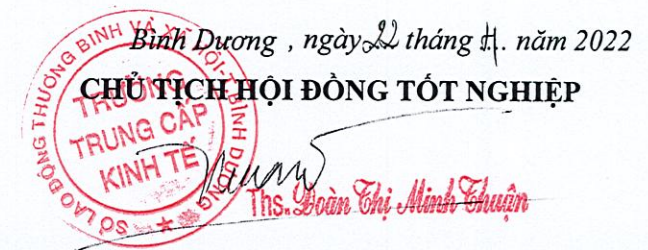 Bình Dương , ngày 22 tháng 4. năm 2022
CHỦ TỊCH HỘI ĐỒNG TỐT NGHIỆP
SỞ LAO ĐỘNG THƯƠNG BINH VÀ XÃ HỘI-T.BÌNH DƯƠNG
TRƯỜNG
TRUNG CẤP
KINH TẾ
Ths. Đoàn Thị Minh Thuận